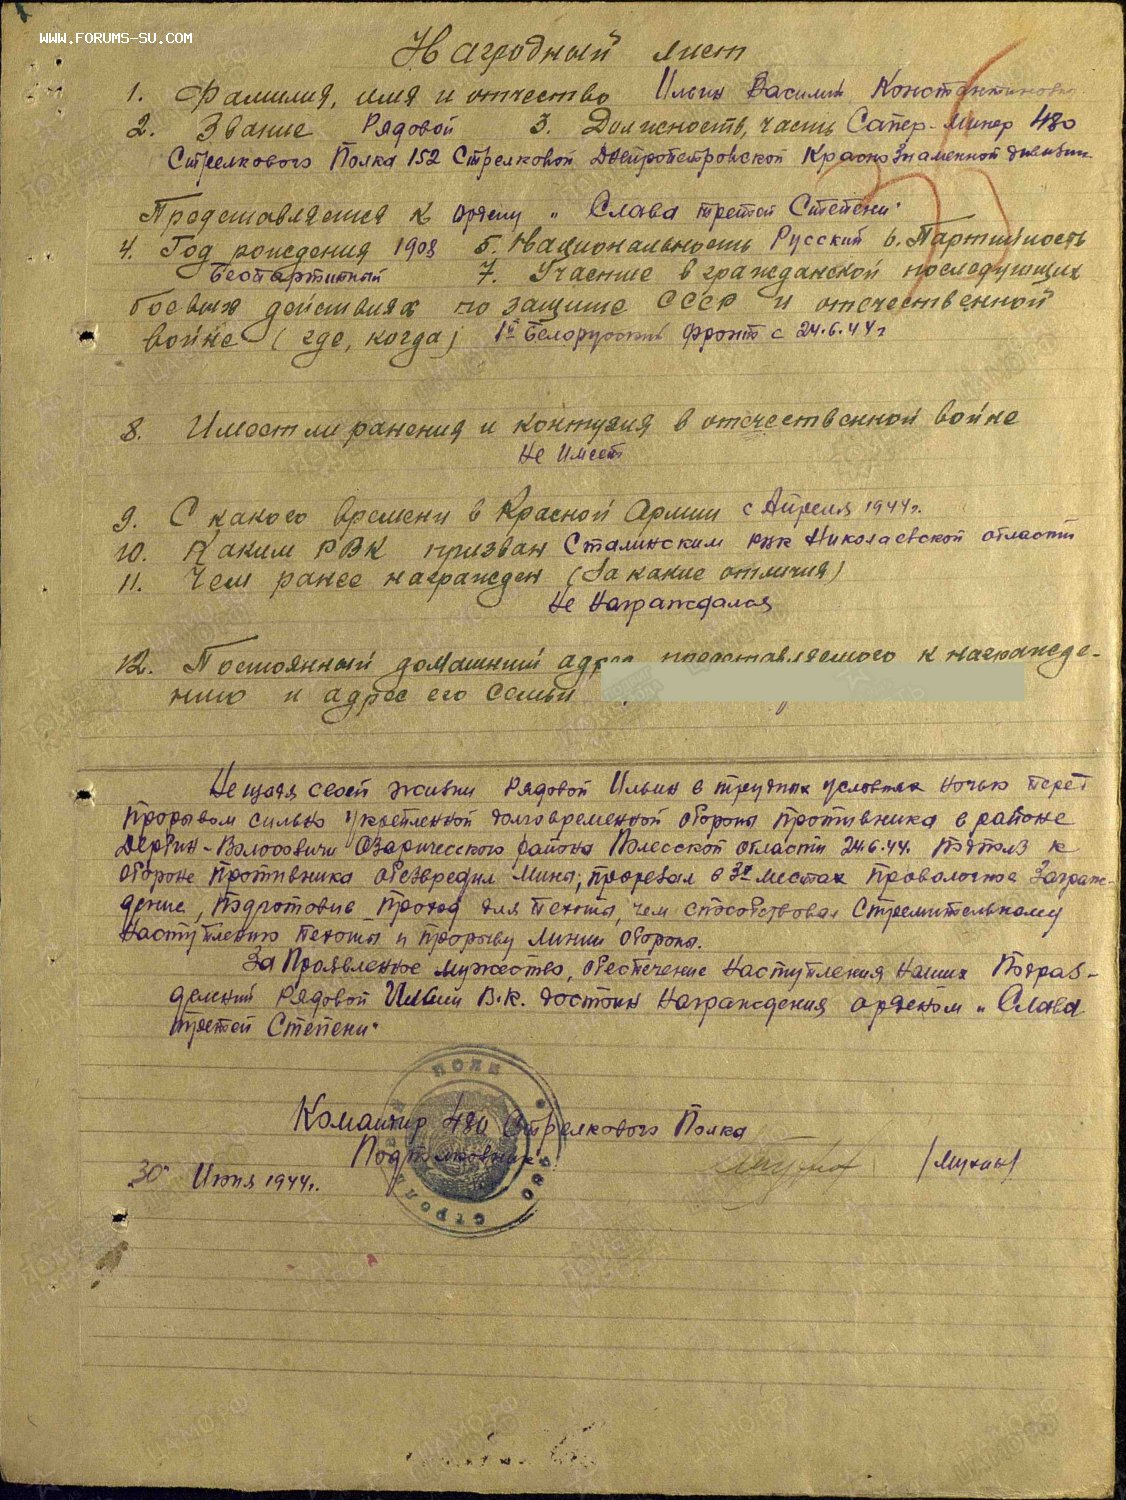 WWW.FORUMS-SU.COM
Наградный лист
1. Фамилия, имя и отчество Ильин Василий Константинович
2. Звание Рядовой 3. Должность, часть Сапер-минер 480
Стрелкового Полка 152 Стрелковой Днепропетровской Краснознаменной дивизии
Представляется к ордену „Слава третей Степени"
4. Год рождения 1908 5. Национальность Русский 6. Партийность
Беспартийный 7. Участие в гражданской последующих
боевых действиях по защите СССР и отечественной
войне (где, когда) 1й Белорусский фронт с 24.6.44г
8. Имеет ли ранения и контузия в отечественной войне
Не Имеет
9. С какого времени в Красной Армии с Апреля 1944г.
10. Каким РВК призван Сталинским рвк Николаевской области
11. Чем ранее награжден (За какие отличия)
Не Награждался
12. Постоянный домашний адрес представляемого к награжде-
нию и адрес его семьи
Не щадя своей жизни Рядовой Ильин в трудных условиях ночью перед
Прорывом сильно укрепленной долговременной обороны противника в районе
Дербин-Волосовичи Озаричесского района Полесской области 24.6.44. подполз к
обороне Противника обезвредил мины, прорезал в 3х местах Проволочное Заграж-
дение, Подготовив проход для пехоты, чем способствовал Стремительному
наступлению пехоты и прорыву линии обороны.
За Проявленное мужество, обеспечение наступления наших Подраз-
делений Рядовой Ильин В.К. достоин Награждения орденом „Слава
третей Степени"
Командир 480 Стрелкового Полка
Подполковник /Мухин/
30 Июня 1944г.